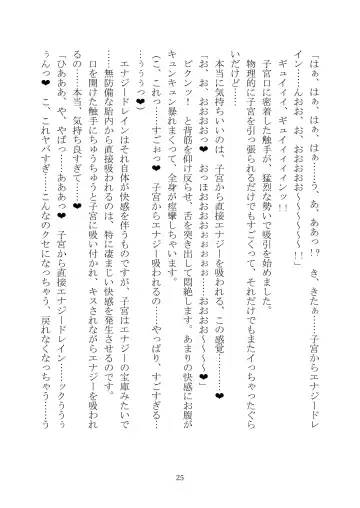 「はぁ、はぁ、はぁ、はぁ……う、あ、ああっ!?　き、きたぁ……子宮からエナジードレ
イン……んおお、お、おおおお～～～～～!!」
　ギュイィィィ、ギュイィィィンッ!!
　子宮口に密着した触手が、猛烈な勢いで吸引を始めました。
　物理的に子宮を引っ張られるだけでもすごくって、それだけでもまたイっちゃったぐら
いだけど……
　本当に気持ちいいのは、子宮から直接エナジーを吸われる、この感覚……❤
「お、おお、おおおおっ❤　おっほおおおおおぉぉぉぉぉ……おおおお～～～～❤」
　ビクンッ！　と背筋を仰け反らせ、舌を突き出して悶絶します。あまりの快感にお腹が
キュンキュン暴れまくって、全身が痙攣しちゃいます。
（こ、これっ……すごぉっ❤　子宮からエナジー吸われるの……やっぱり、すごすぎる…
…ぅぅぅっ❤）
　エナジードレインはそれ自体が快感を伴うものですが、子宮はエナジーの宝庫みたいで
　無防備な胎内から直接吸われるのは、特に凄まじい快感を発生させるのです。
　口を開けた触手にちゅうちゅうと子宮に吸い付かれ、キスされながらエナジーを吸われ
るの……本当、気持ち良すぎて……❤
「ひあああ、や、やばっ……あああっ❤　子宮から直接エナジードレイン……ックぅぅぅ
ぅんっ❤　こ、これヤバすぎ……こんなのクセになっちゃう、戻れなくなっちゃう……う
25